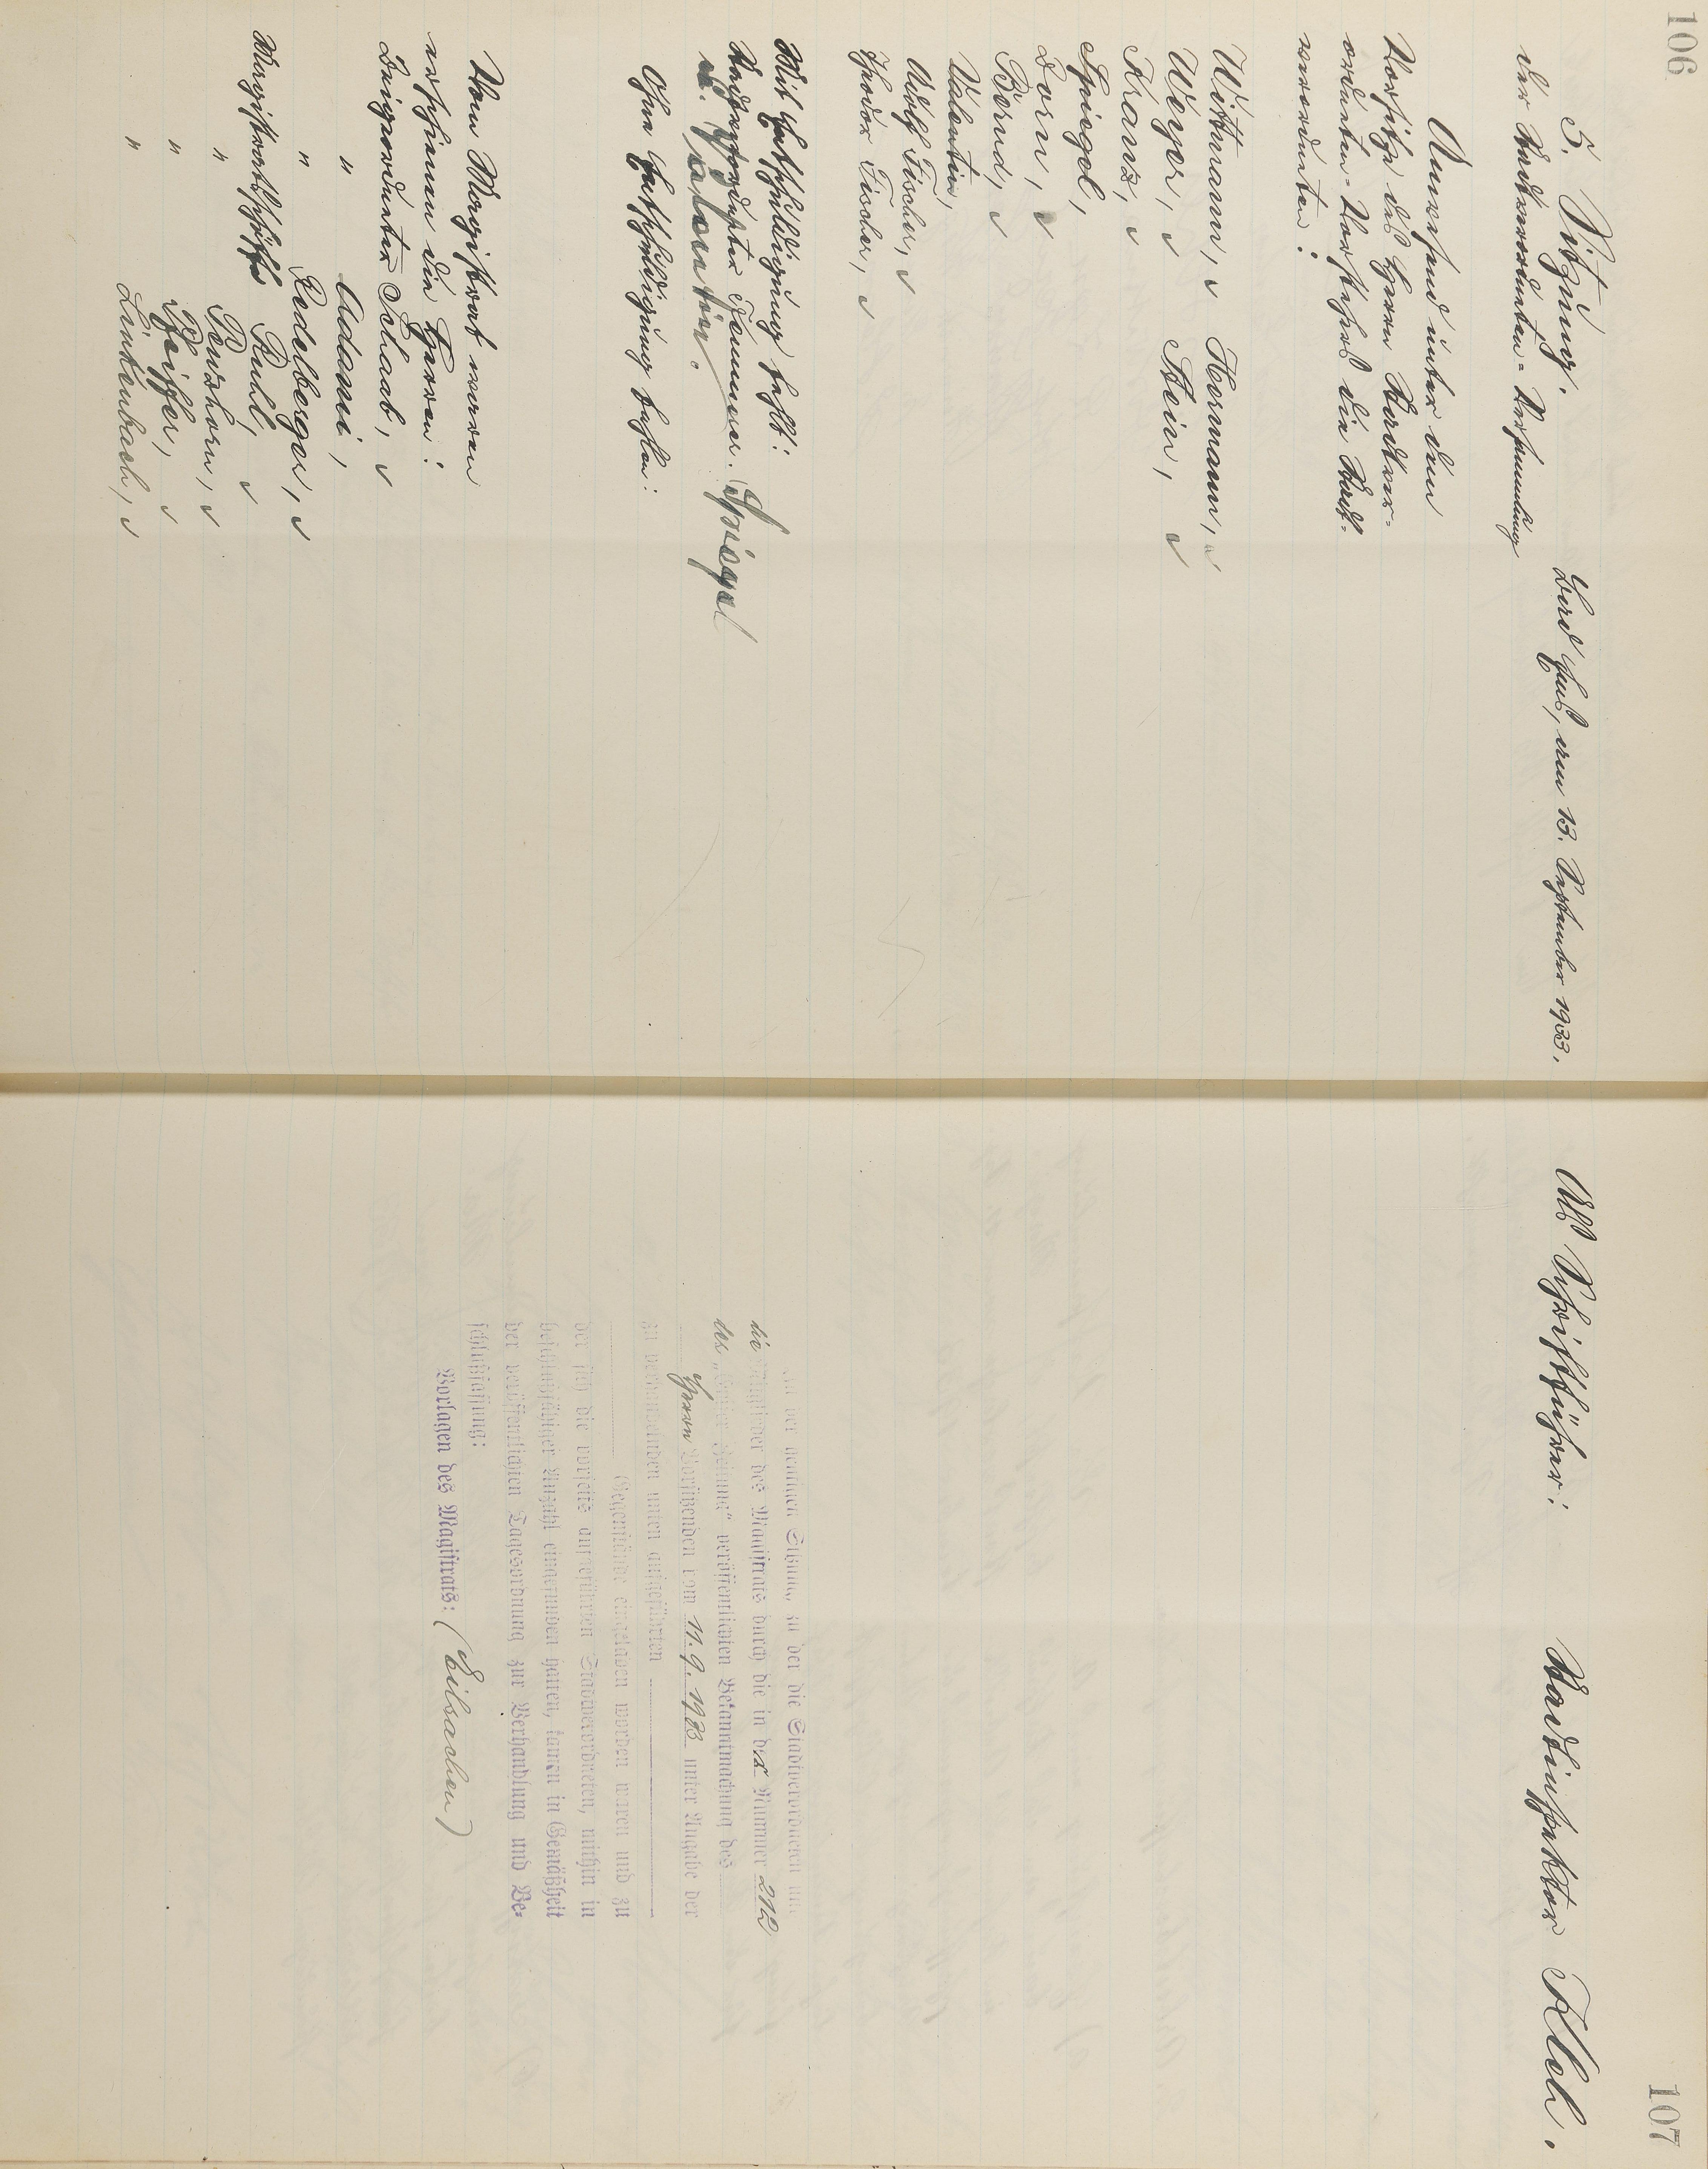 106
5. Sitzung.
der Stadtverordneten-Versammlung
Bad Ems, am 13. September 1933.
Anwesend unter dem
Vorsitze des Herrn Stadtver-
ordneten-Vorstehers die Stadt-
verordneten:
Wittmann, Hermann,
Weyer, Stein,
Kranz,
Spiegel,
Dorn,
Bernd,
Valentin,
Adolf Fischer,
Theodor Fischer,
Mit Entschuldigung fehlt:
Stadtverordneter Spiegel
u. Valentin.
Ohne Entschuldigung fehlen:
Vom Magistrat waren
erschienen die Herren:
Beigeordneter Schaab,
" Adami,
" Redelberger,
Magistratsschöffe Ruhl,
" Pewzhorn,
" Pfeiffer,
" Linkenbach,
107
Als Schriftführer: Stadtinspektor Kloch.
In der heutigen Sitzung, zu der die Stadtverordneten und
die Mitglieder des Magistrats durch die in der Nummer 212
der "Emser Zeitung" veröffentlichten Bekanntmachung des
Herrn Vorsitzenden vom 11.9.1933 unter Angabe der
zu verhandelnden unten aufgeführten
Gegenstände eingeladen worden waren und zu
der sich die vorseits aufgeführten Stadtverordneten, mithin in
beschlußfähiger Anzahl eingefunden hatten, kamen in Gemäßheit
der veröffentlichten Tagesordnung zur Verhandlung und Be-
schlußfassung:
Vorlagen des Magistrats: (Eilsachen)